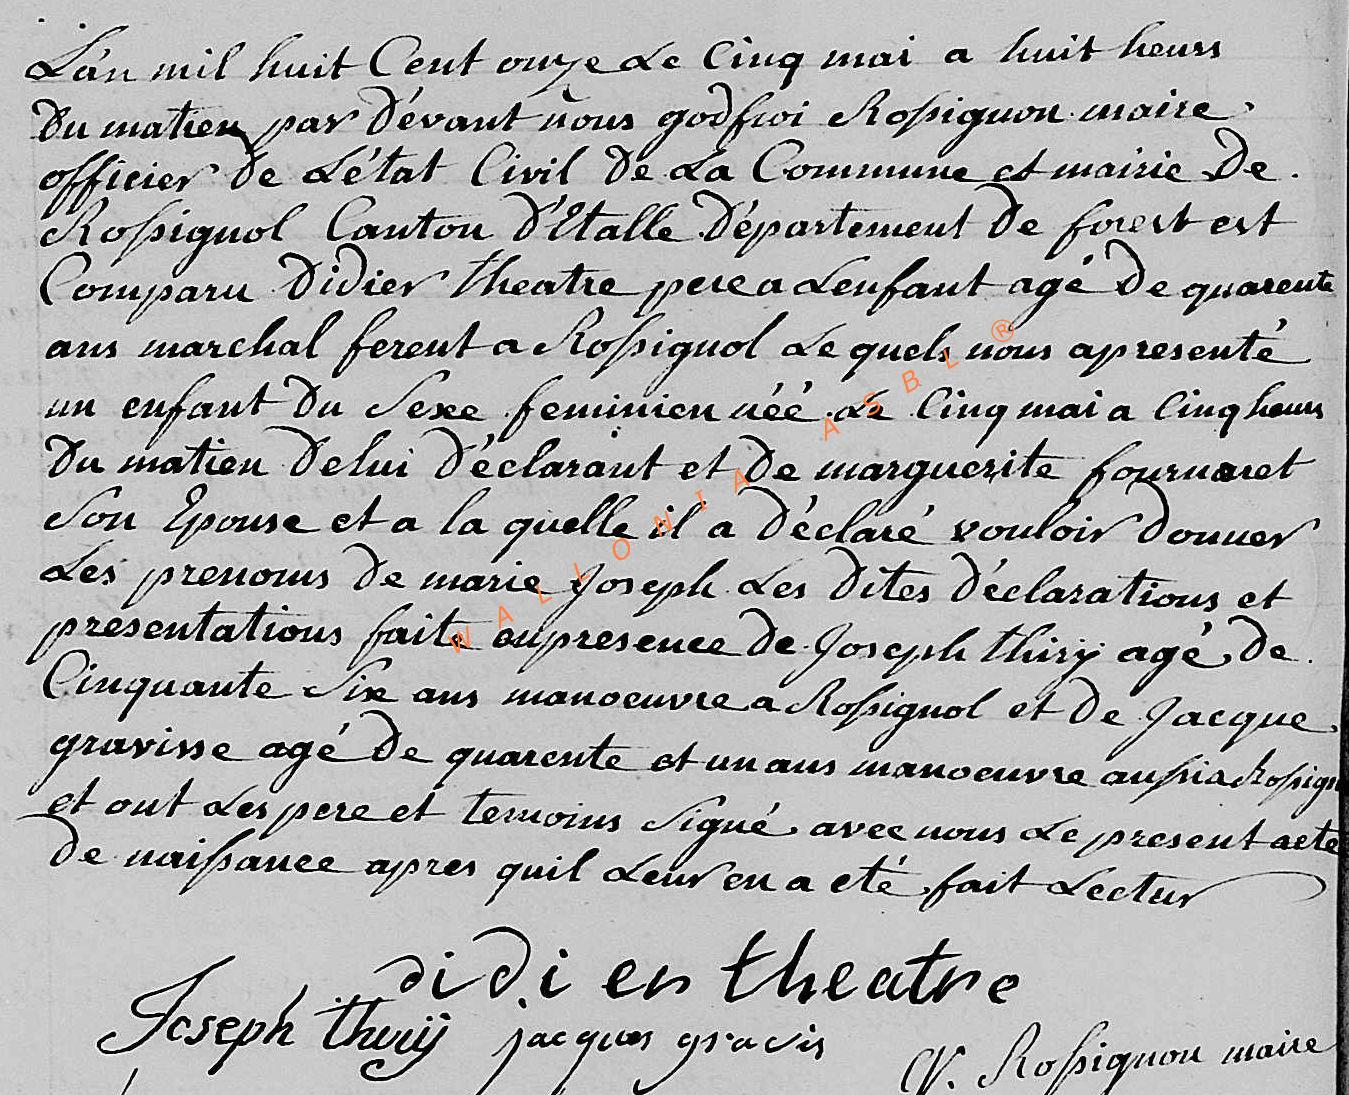 L'an mil huit Cent onze Le Cinq mai a huit heurs
Du matien par dévant nous godfroi Rossignon maire
officier de L'état Civil de La Commune et mairie de
Rossignol Canton d'Etalle Département de forest est
Comparu Didier theatre pere a Lenfant agé de quarente
ans marchal ferent a Rossignol Le quels nous apresenté
un enfant du Sexe feminien néé Le Cinq mai a Cinq heurs
Du matien Delui déclarant et de marguerite fournaret
Son Epouse et a la quelle il a déclaré vouloir donner
Les prenoms de marie Joseph Les dites déclarations et
presentations faite enpresence de Joseph thirÿ agé de
Cinquante Six ans manoeuvre a Rossignol et de Jacque
gravisse agé de quarente et un ans manoeuvre aussi a Rossign
et ont Les pere et temoins Signé avec nous Le present acte
De naissance apres quil Leur en a eté fait Lectur
didier theatre
Joseph thirÿ jacques gravis
Rossignon maire
WALLONIA ASBL ®